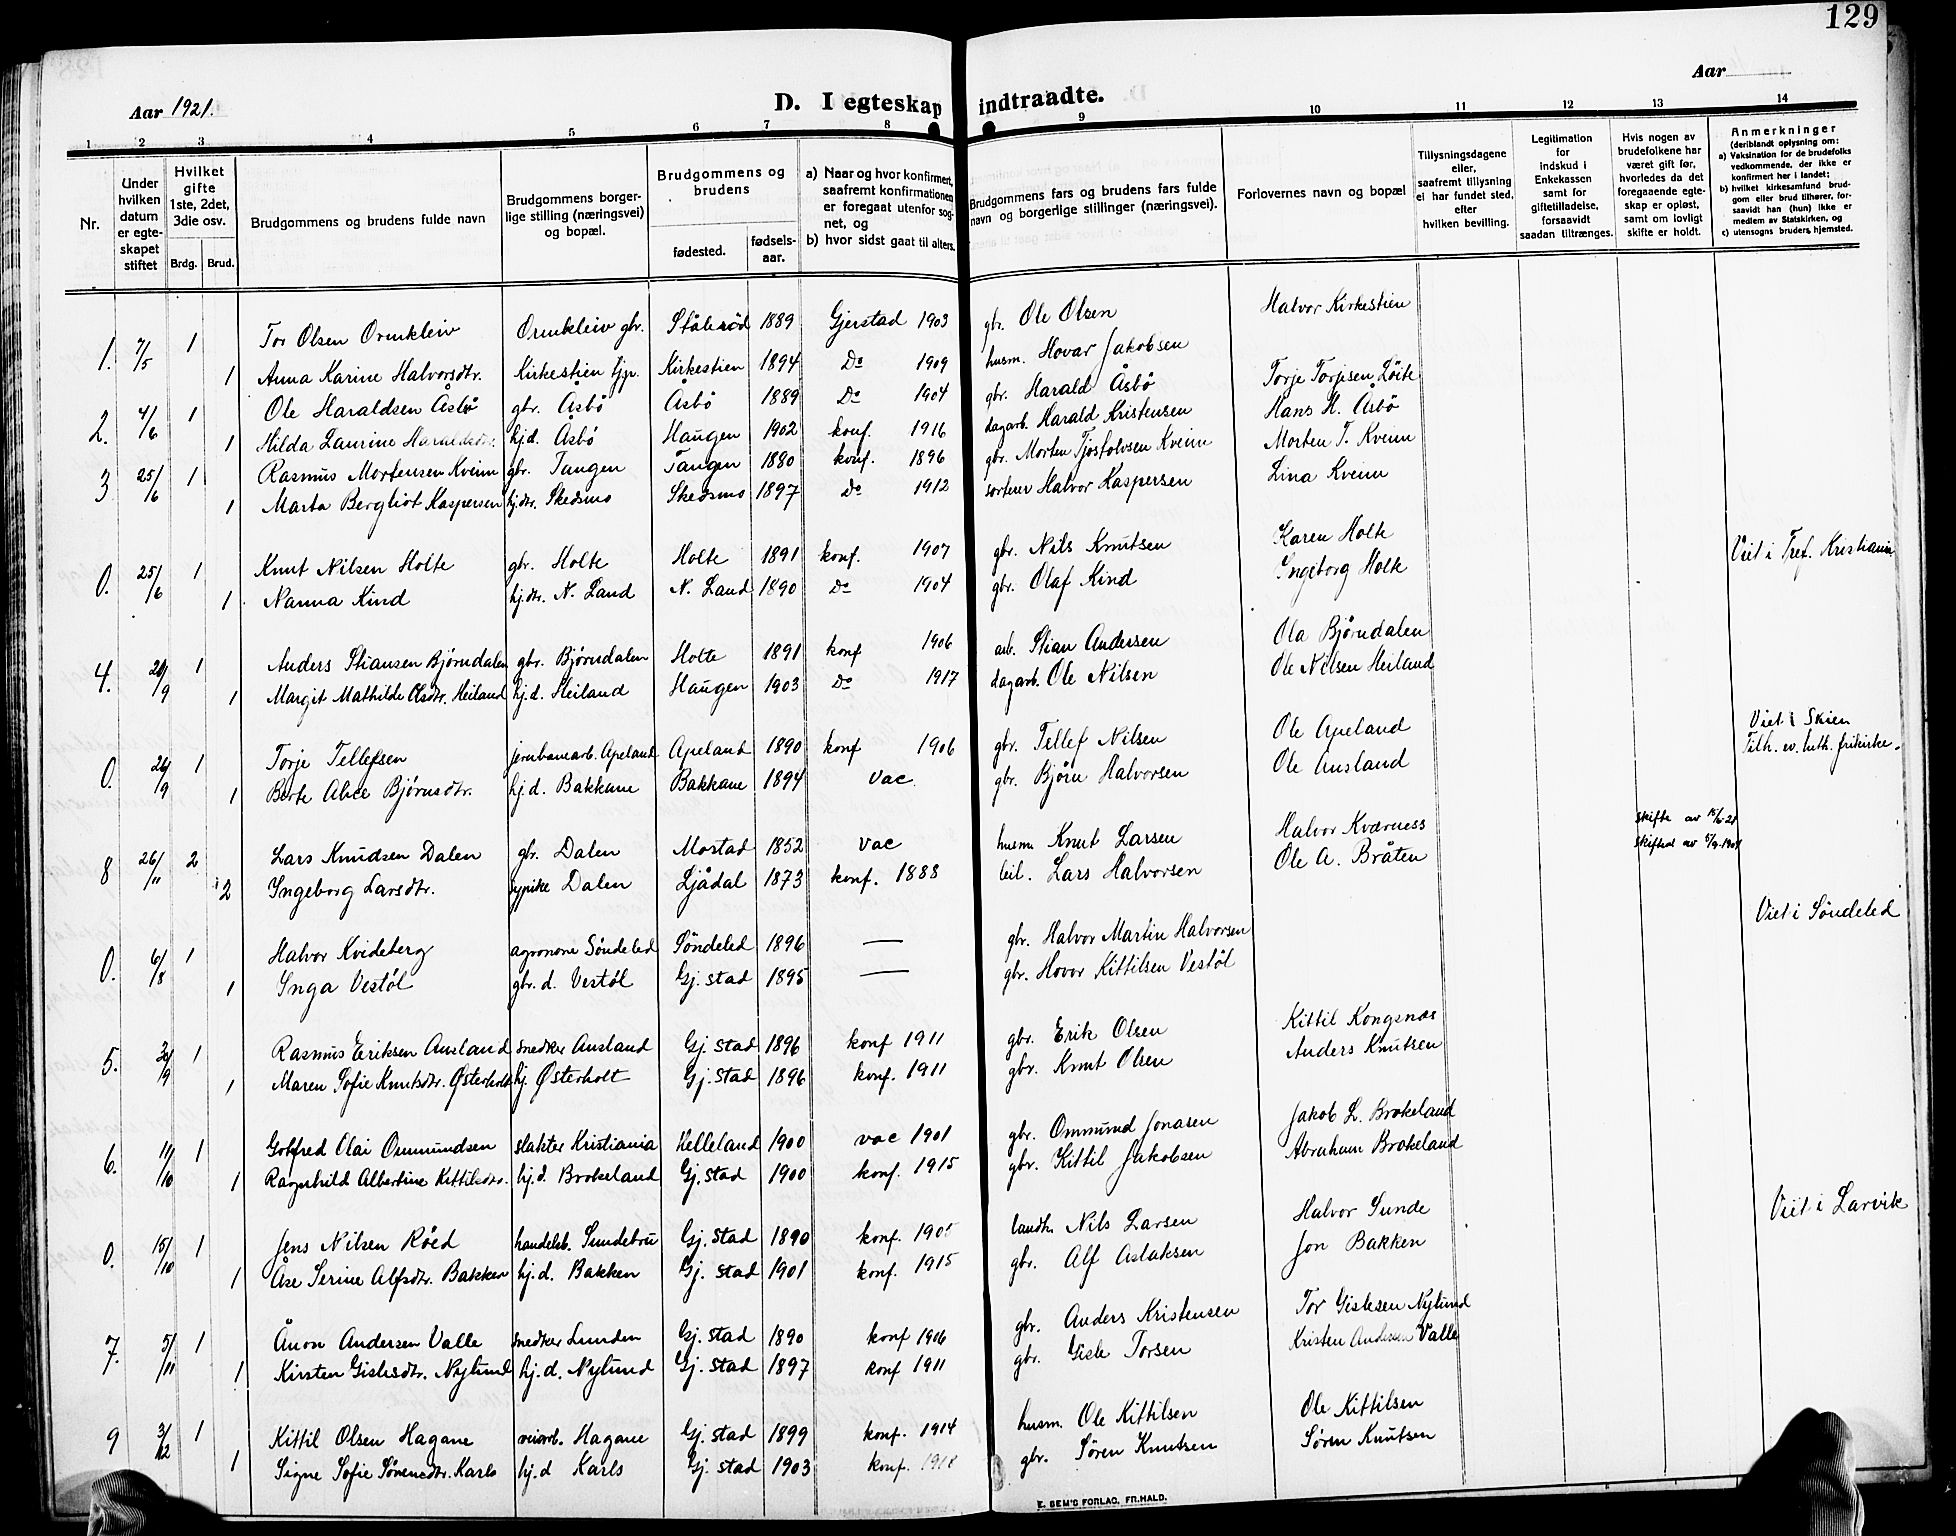 129
Aar 1921.
D. I egteskap indtraadte.
Aar
1 2 3 4 5 6 7 8 9 10 11 12 13 14
Nr.
Under hvilken datum er egteskapet stiftet
Hvilket gifte 1ste, 2det, 3die osv.
Brdg. Brud.
Brudgommens og brudens fulde navn
Brudgommens borgerlige stilling (næringsvei) og bopæl.
Brudgommens og brudens
fødested.
fødselsaar.
a) Naar og hvor konfirmert, saafremt konfirmationen er foregaat utenfor sognet, og
b) hvor sidst gaat til alters.
Brudgommens fars og brudens fars fulde navn og borgerlige stillinger (næringsvei).
Forlovernes navn og bopæl
Tillysningsdagene eller, saafremt tillysning ei har fundet sted, efter hvilken bevilling.
Legitimation for indskud i Enkekassen samt for giftetilladelse, forsaavidt saadan tiltrænges.
Hvis nogen av brudefolkene har været gift før, hvorledes da det foregaaende egteskap er opløst, samt om lovligt skifte er holdt.
Anmerkninger
(deriblandt oplysning om:
a) Vaksination for de brudefolks vedkommende, der ikke er konfirmert her i landet;
b) hvilket kirkesamfund brudgom eller brud tilhører, forsaavidt han (hun) ikke er medlem av Statskirken, og
c) utensogns bruders hjemsted.
1. 7/5 1 Tor Olsen Ormkleiv Ormkleiv gbr. Stålerød 1889 Gjerstad 1903 gbr. Ole Olsen Halvor Kirkestien
1 Anna Karine Halvorsdtr. Kirkestien tjp. Kirkestien 1894 Do 1909 husm. Hovar Jakobsen
2. 4/6 1 Ole Haraldsen Åsbø gbr. Åsbø Åsbø 1889 Do 1904 gbr. Harald Åsbø Torje Torjisen Løite
1 Hilda Laurine Haraldsdtr. hj.d. Åsbø Haugen 1902 konf. 1916 dagarb. Harald Kristensen Hans H. Åsbø
3 25/6 1 Rasmus Mortensen Kveim gbr. Tangen Tangen 1880 konf. 1896 gbr. Morten Tjostolvsen Kveim Morten T. Kveim
1 Marta Bergliot Kaspersen hj.dtr. Skedsmo Skedsmo 1897 Do 1912 sorterer Halvor Kaspersen Lina Kveim
0. 25/6 1 Knut Nilsen Holte gbr. Holte Holte 1891 konf. 1907 gbr. Nils Knutsen Karen Holte Viet i Tref. Kristiania
1 Nanna Kind hj.dtr. N. Land N. Land 1890 Do 1904 gbr. Olaf Kind Ingeborg Holte
4. /9 1 Anders Stiansen Bjørndalen gbr. Bjørndalen Holte 1891 konf 1906 arb. Stian Andersen Ola Bjørndalen
1 Margit Mathilde Olsdtr. Heiland hj.d. Heiland Haugen 1903 Do 1917 dagarb. Ole Nilsen Ole Nilsen Heiland
0. /9 1 Torje Tellefsen jernbanearb. Apeland Apeland 1890 konf 1906 gbr. Tellef Nilsen Ole Apeland Viet i Skien
1 Berte Alice Bjørnsdtr. hj.d. Bakkane Bakkane 1894 vac. gbr. Bjørn Halvorsen Ole Ausland Tilh. ev. luth. frikirke.
8 26/11 2 Lars Knudsen Dalen gbr. Dalen Mostad 1852 vac husm. Knut Larsen Halvor Kværness skifte av
2 Ingeborg Larsdtr. Dalen Ljådal 1873 konf. 1888 leil. Lars Halvorsen Ole A. Bråten
0. 6/8 1 Halvor Kvideberg agronom Søndeled Søndeled 1896 — gbr. Halvor Martin Halvorsen Viet i Søndeled
1 Inga Vestøl gbr. d. Vestøl Gj.stad 1895 — gbr. Hovor Kittilsen Vestøl
5. /9 1 Rasmus Eriksen Ausland snedker Ausland Gj.stad 1896 konf 1911 gbr. Erik Olsen Kittil Kongsnæs
1 Maren Sofie Knutsdtr. Østerholt hj. Østerholt Gj.stad 1896 konf. 1911 gbr. Knut Olsen Anders Knutsen
6. 11/10 1 Gotfred Olai Ommundsen slakter Kristiania Helleland 1900 vac 1901 gbr. Ommund Jonasen Jakob L. Brokeland
1 Ragnhild Albertine Kittilsdtr. hj.d. Brokeland Gj.stad 1900 konf. 1915 gbr. Kittil Jakobsen Abraham Brokeland
0. 15/10 1 Jens Nilsen Røed handelsb. Sundebru Gj.stad 1890 konf. 1905 landh. Nils Larsen Halvor Sunde Viet i Larvik
1 Åse Serine Alfsdtr. Bakken hj.d. Bakken Gj. stad 1901 konf. 1915 gbr. Alf Aslaksen Jon Bakken
7. 5/11 1 Ånon Andersen Valle snedker Lunden Gj.stad 1890 konf 1906 gbr. Anders Kristensen Tor Gislesen Nylund
1 Kirsten Gislesdtr. Nylund hj.d. Nylund Gj.stad 1897 konf 1911 gbr. Gisle Torsen Kristen Andersen Valle
9 3/12 1 Kittil Olsen Hagane veiarb. Hagane Gj.stad 1899 konf. 1914 husm. Ole Kittilsen Ole Kittilsen
1 Signe Sofie Sørensdtr. Karls hj.d Karls Gj. stad 1903 konf. 1918 gbr. Søren Knutsen Søren Knutsen
E. SEM'S FORLAG, FR.HALD.